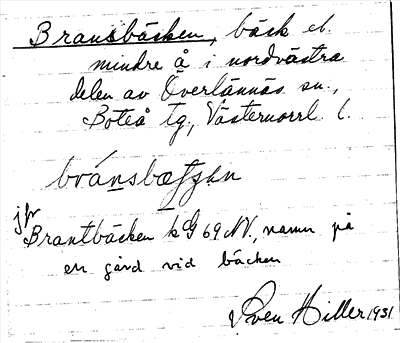 Bransbäcken, bäck el.
mindre å i nordvästra
delen av Överlännäs sn.,
Boteå tg., Västernorrl. l.
jfr
Brantbäcken k G 69 NV., namn på
en gård vid bäcken
Sven Hiller 1931